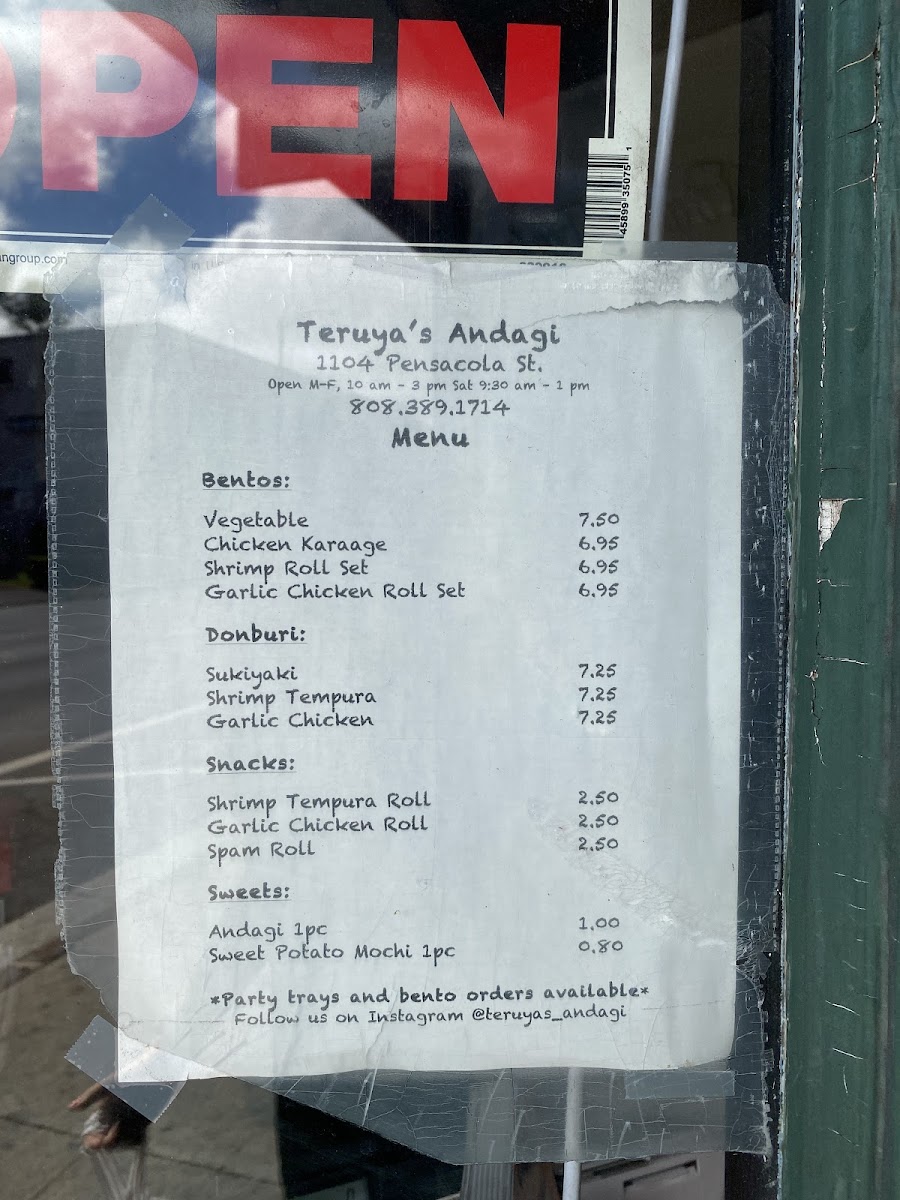 OPEN
45899 35075 1
Teruya's Andagi
1104 Pensacola St.
Open M-F, 10 am - 3 pm Sat 9:30 am - 1 pm
808.389.1714
Menu
Bentos:
Vegetable 7.50
Chicken Karaage 6.95
Shrimp Roll Set 6.95
Garlic Chicken Roll Set 6.95
Donburi:
Sukiyaki 7.25
Shrimp Tempura 7.25
Garlic Chicken 7.25
Snacks:
Shrimp Tempura Roll 2.50
Garlic Chicken Roll 2.50
Spam Roll 2.50
Sweets:
Andagi 1pc 1.00
Sweet Potato Mochi 1pc 0.80
*Party trays and bento orders available*
Follow us on Instagram @teruyas_andagi